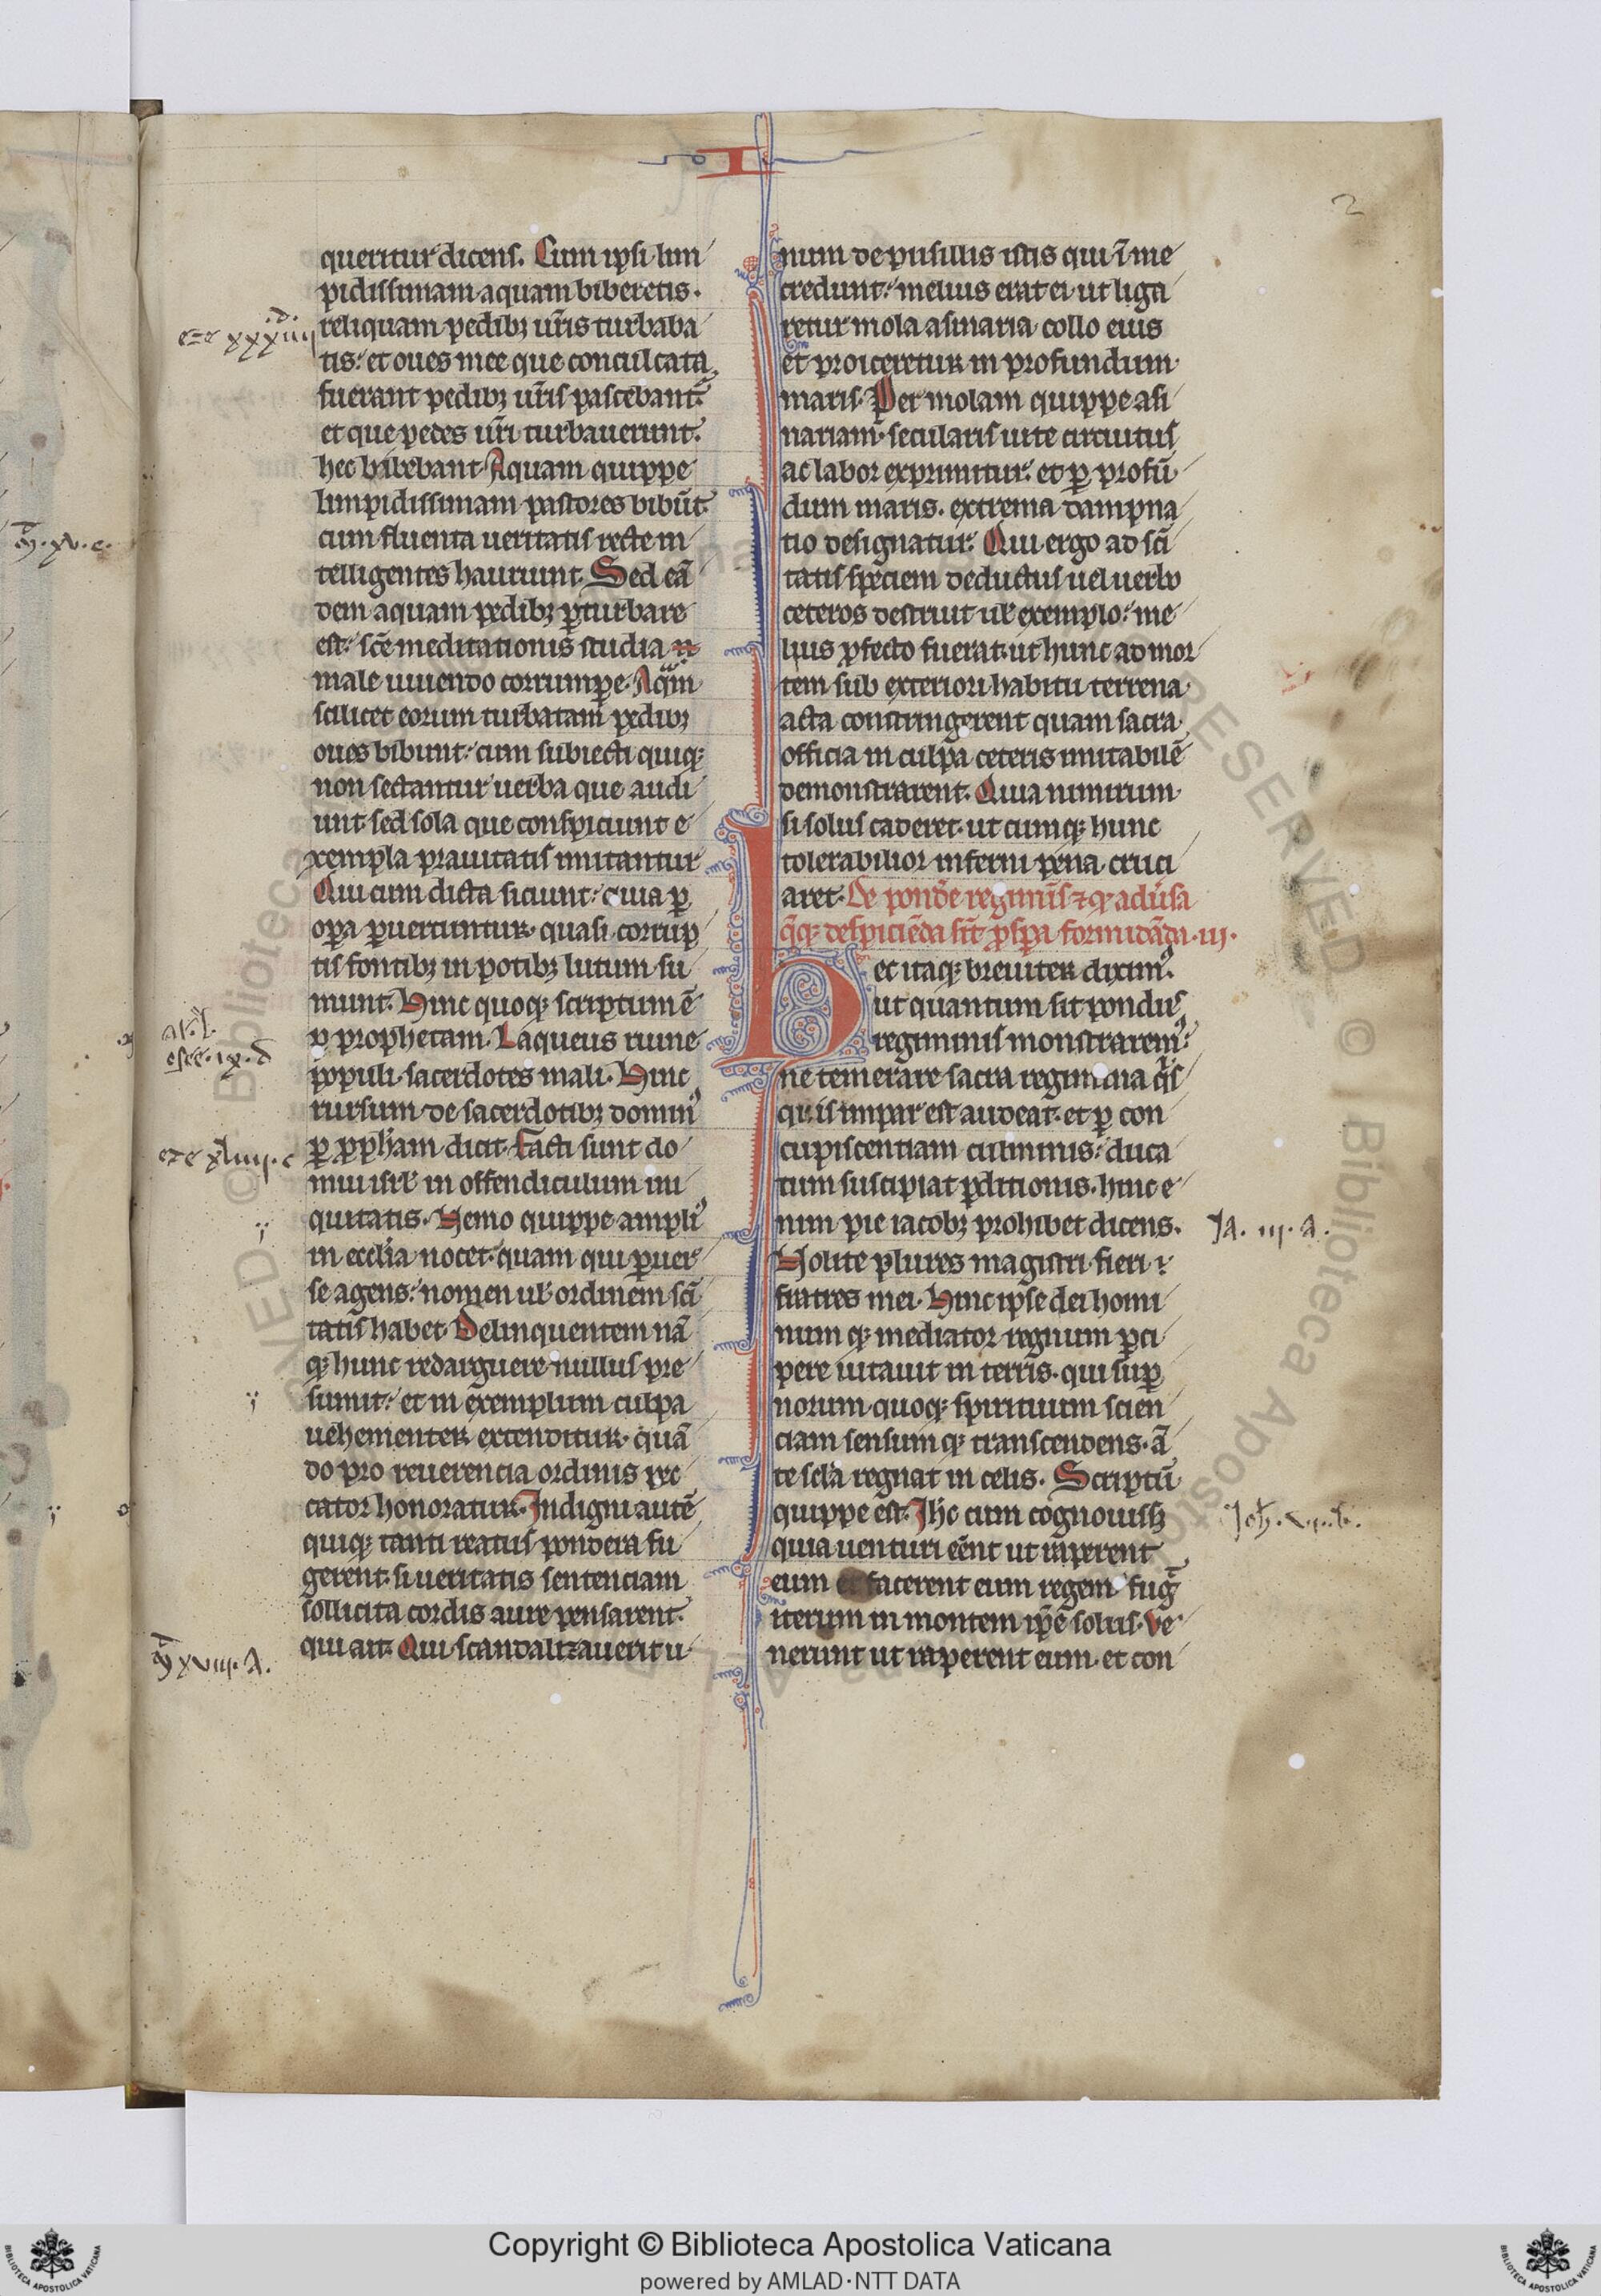 I
2
queritur dicens. Cum ipsi lim
pidissimam aquam biberetis.
reliquam pedibꝫ ur̄is turbaba
tis: et oues mee que conculcata
fuerant pedibꝫ ur̄is pascebant̃
et que pedes ur̄i turbauerunt.
hec bibebant Aquam quippe
limpidissimam pastores bibūt
cum fluenta ueritatis recte in
telligentes hauriunt. Sed eā
dem aquam pedibꝫ ꝑturbare
est: sc̄e meditationis studia
male uiuendo corrumpe. Aqᷓm
scilicet eorum turbatam pedibꝫ
oues bibunt: cum subiecti quiqꝫ
non sectantur uerba que audi
unt sed sola que conspiciunt e
xempla prauitatis imitantur
Qui cum dicta siciunt: quia ꝑ
oꝑa ꝑuertuntur. quasi corrup
tis fontibꝫ in potibꝫ lutum su
munt. Hinc quoqꝫ scriptum ē
ꝑ prophetam. Laqueus ruine
populi. sacerdotes mali. Hinc
rursum de sacerdotibꝫ dominꝰ
ꝑ ꝓpħam dicit. Facti sunt do
mui isrł in offendiculum ini
quitatis. Nemo quippe ampliꝰ
in eccłia nocet. quam qui ꝑuer
se agens: nomen uł ordinem sc̄i
tatis habet. Delinquentem nā
qꝫ hunc redarguere nullus pre
sumit: et in exemplum culpa
uehementer extenditur. quā
do pro reuerencia ordinis pec
cator honoratur. Indigni autē
quiqꝫ tanti reatus pondera fu
gerent. si ueritatis sentenciam
sollicita cordis aure pensarent.
qui ait. Qui scandalizauerit u
num de pusillis istis qui ī me
credunt: melius erat ei ut liga
retur mola asinaria collo eius
et proiceretur in profundum
maris. Per molam quippe asi
nariam. secularis uite circuitus
ac labor exprimitur. et ꝑ profū
dum maris. extrema dampna
tio designatur. Qui ergo ad sc̄i
tatis speciem deductus uel uerbo
ceteros destruit uł exemplo: me
lius ꝓfecto fuerat. ut hunc ad mor
tem sub exteriori habitu terrena
acta constringerent quam sacra
officia in culpa ceteris imitabilē
demonstrarent. Quia nimirum
si solus caderet. ut cumqꝫ hunc
tolerabilior inferni pena cruci
aret. De pondere regiminis ⁊ qꝫ adũsa
q̄qꝫ despiciēda sīt ꝓspa formidāda. iij.
Hec itaqꝫ breuiter diximꝰ.
ut quantum sit pondus
regiminis monstraremꝰ:
ne temerare sacra regimina qⁱs
quis impar est audeat. et ꝑ con
cupiscentiam culminis: duca
tum suscipiat ꝑditionis. hinc e
nim pie iacobꝫ prohibet dicens.
Nolite plures magistri fieri
fratres mei. Hinc ipse dei homi
num qꝫ mediator regnum ꝑci
pere uitauit in terris. qui suꝑ
norum quoqꝫ spirituum scien
ciam sensum qꝫ transcendens. ā
te scła regnat in celis. Scriptū
quippe est. Ihc̄ cum cognouissꝫ
quia uenturi eēnt ut raperent
eum et facerent eum regem fugᷓ
iterum in montem ip̄e solus. Ve
nerunt ut raperent eum. et con
eze xxxiiij
.d.
ezc xliiij. c
xviij. A.
Ja. iij. A.
Joh. v.. b.
Copyright © Biblioteca Apostolica Vaticana
powered by AMLAD·NTT DATA
BIBLIOTECA APOSTOLICA VATICANA
BIBLIOTECA APOSTOLICA VATICANA